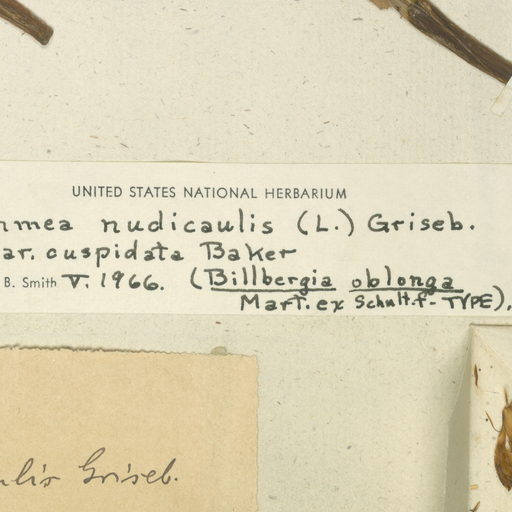 UNITED STATES NATIONAL HERBARIUM
nmea nudicaulis (L.) Griseb.
ar. cuspidata Baker
B. Smith V. 1966. (Billbergia oblonga
Mart. ex Schult.f - TYPE).
ulis Griseb.